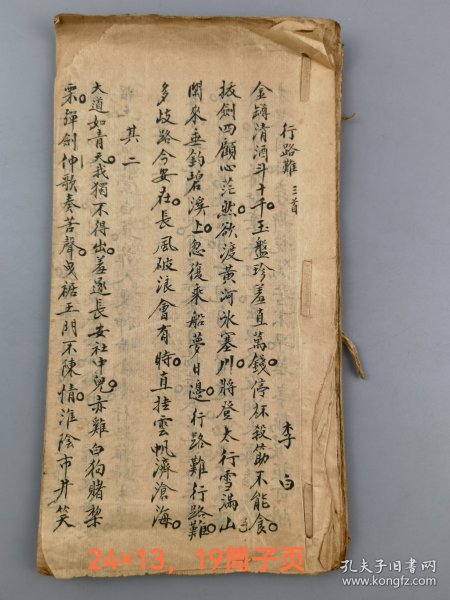 行路難 三首
李白
金罇清酒斗十千玉盤珍羞直萬錢停杯投筯不能食
拔劍四顧心茫然欲渡黃河冰塞川將登太行雪滿山
閑來垂釣碧溪上忽復乘船夢日邊行路難行路難
多歧路今安在長風破浪會有時直挂雲帆濟滄海
其二
大道如青天我獨不得出羞逐長安社中兒赤雞白狗賭梨
栗彈劍仲歌奏苦聲曳裾王門不陳情淮陰市井笑
24*13，19筒子页
孔夫子旧书网